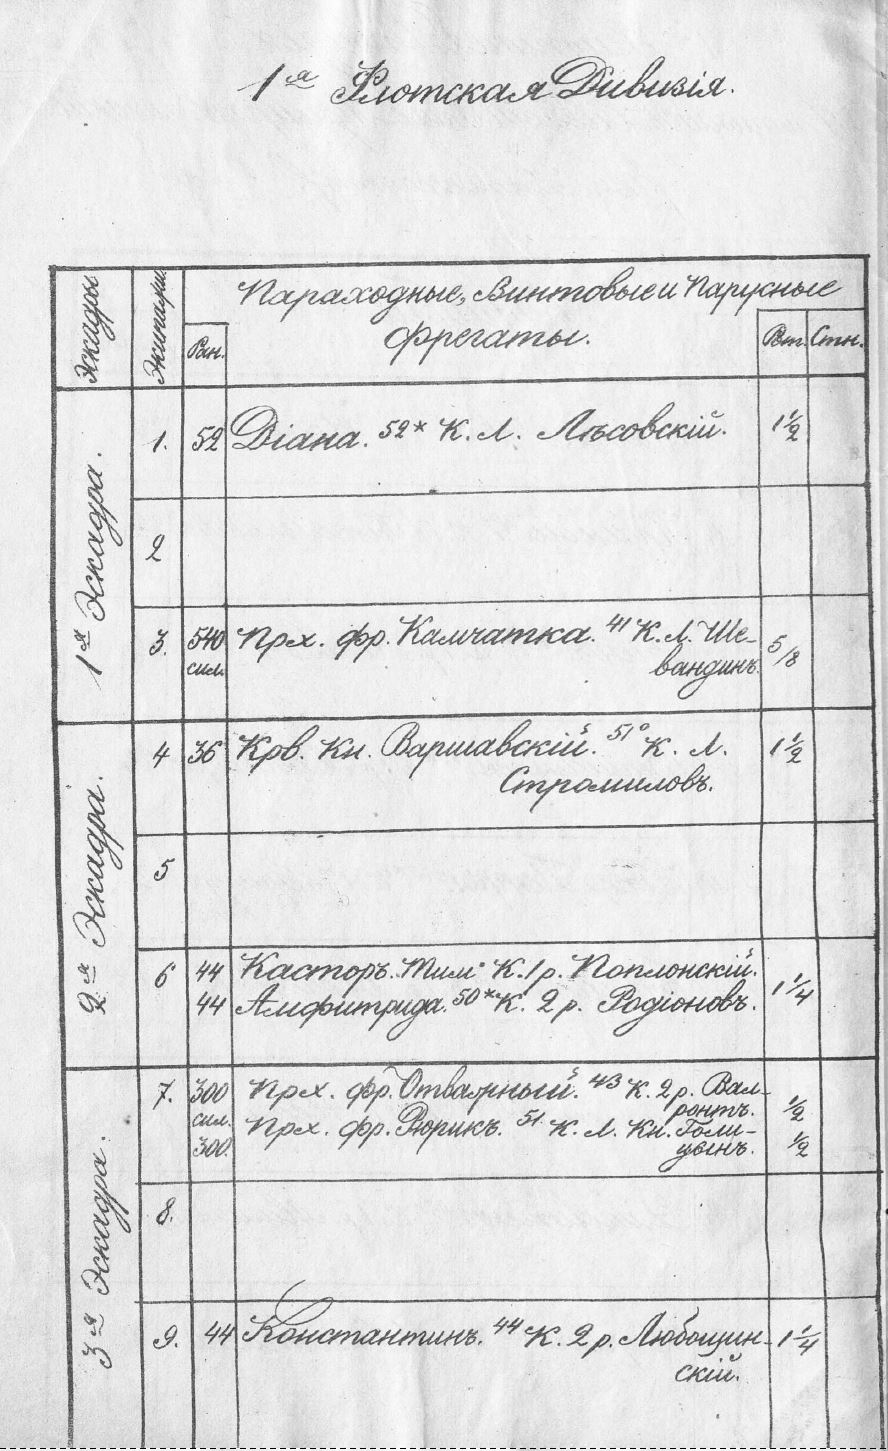 1я Флотская Дивизія.
Эскадры
Экипажи.
Ран.
Параходные, Винтовые и Парусные
фрегаты.
Рт.
Стн.
1я Эскадра.
1. 52 Діана. 52* К. Л. Лѣсовскій. 1 1/2
2
3. 540 Прх. фр. Камчатка. 41 К. Л. Ше- 5/8
сил. вандинъ.
2я Эскадра.
4 36 Крв. Кн. Варшавскій. 51° К. Л. 1 1/2
Стромиловъ.
5
6 44 Касторъ. Тим. К. 1 р. Поплонскій. 1 1/4
44 Амфитрида. 50* К. 2 р. Родіоновъ.
3я Эскадра.
7. 300 Прх. фр. Отважный. 43 К. 2 р. Вал-
сил. ронтъ. 1/2
300. Прх. фр. Рюрикъ. 51 К. Л. Кн. Голи-
цынъ. 1/2
8.
9. 44 Константинъ. 44 К. 2 р. Любощин- 1 1/4
скій.